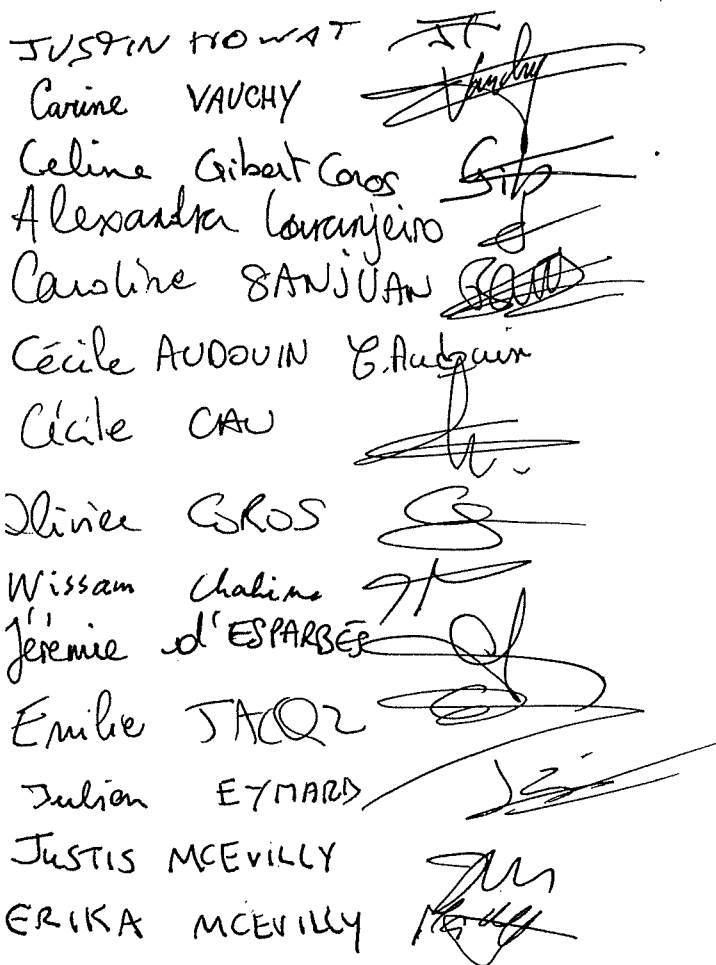 JUSTIN HOWAT
Carine VAUCHY
Celine Gibert Coros Gib
Alexandra Laranjeiro
Caroline SANJUAN
Cécile AUDOUIN C.Audouin
Cécile CAU
Olivier COROS
Wissam Chahine
Jérémie d'ESPARBÈS
Emilie JACQZ
Julien EYMARD
JUSTIS MCEVILLY
ERIKA MCEVILLY